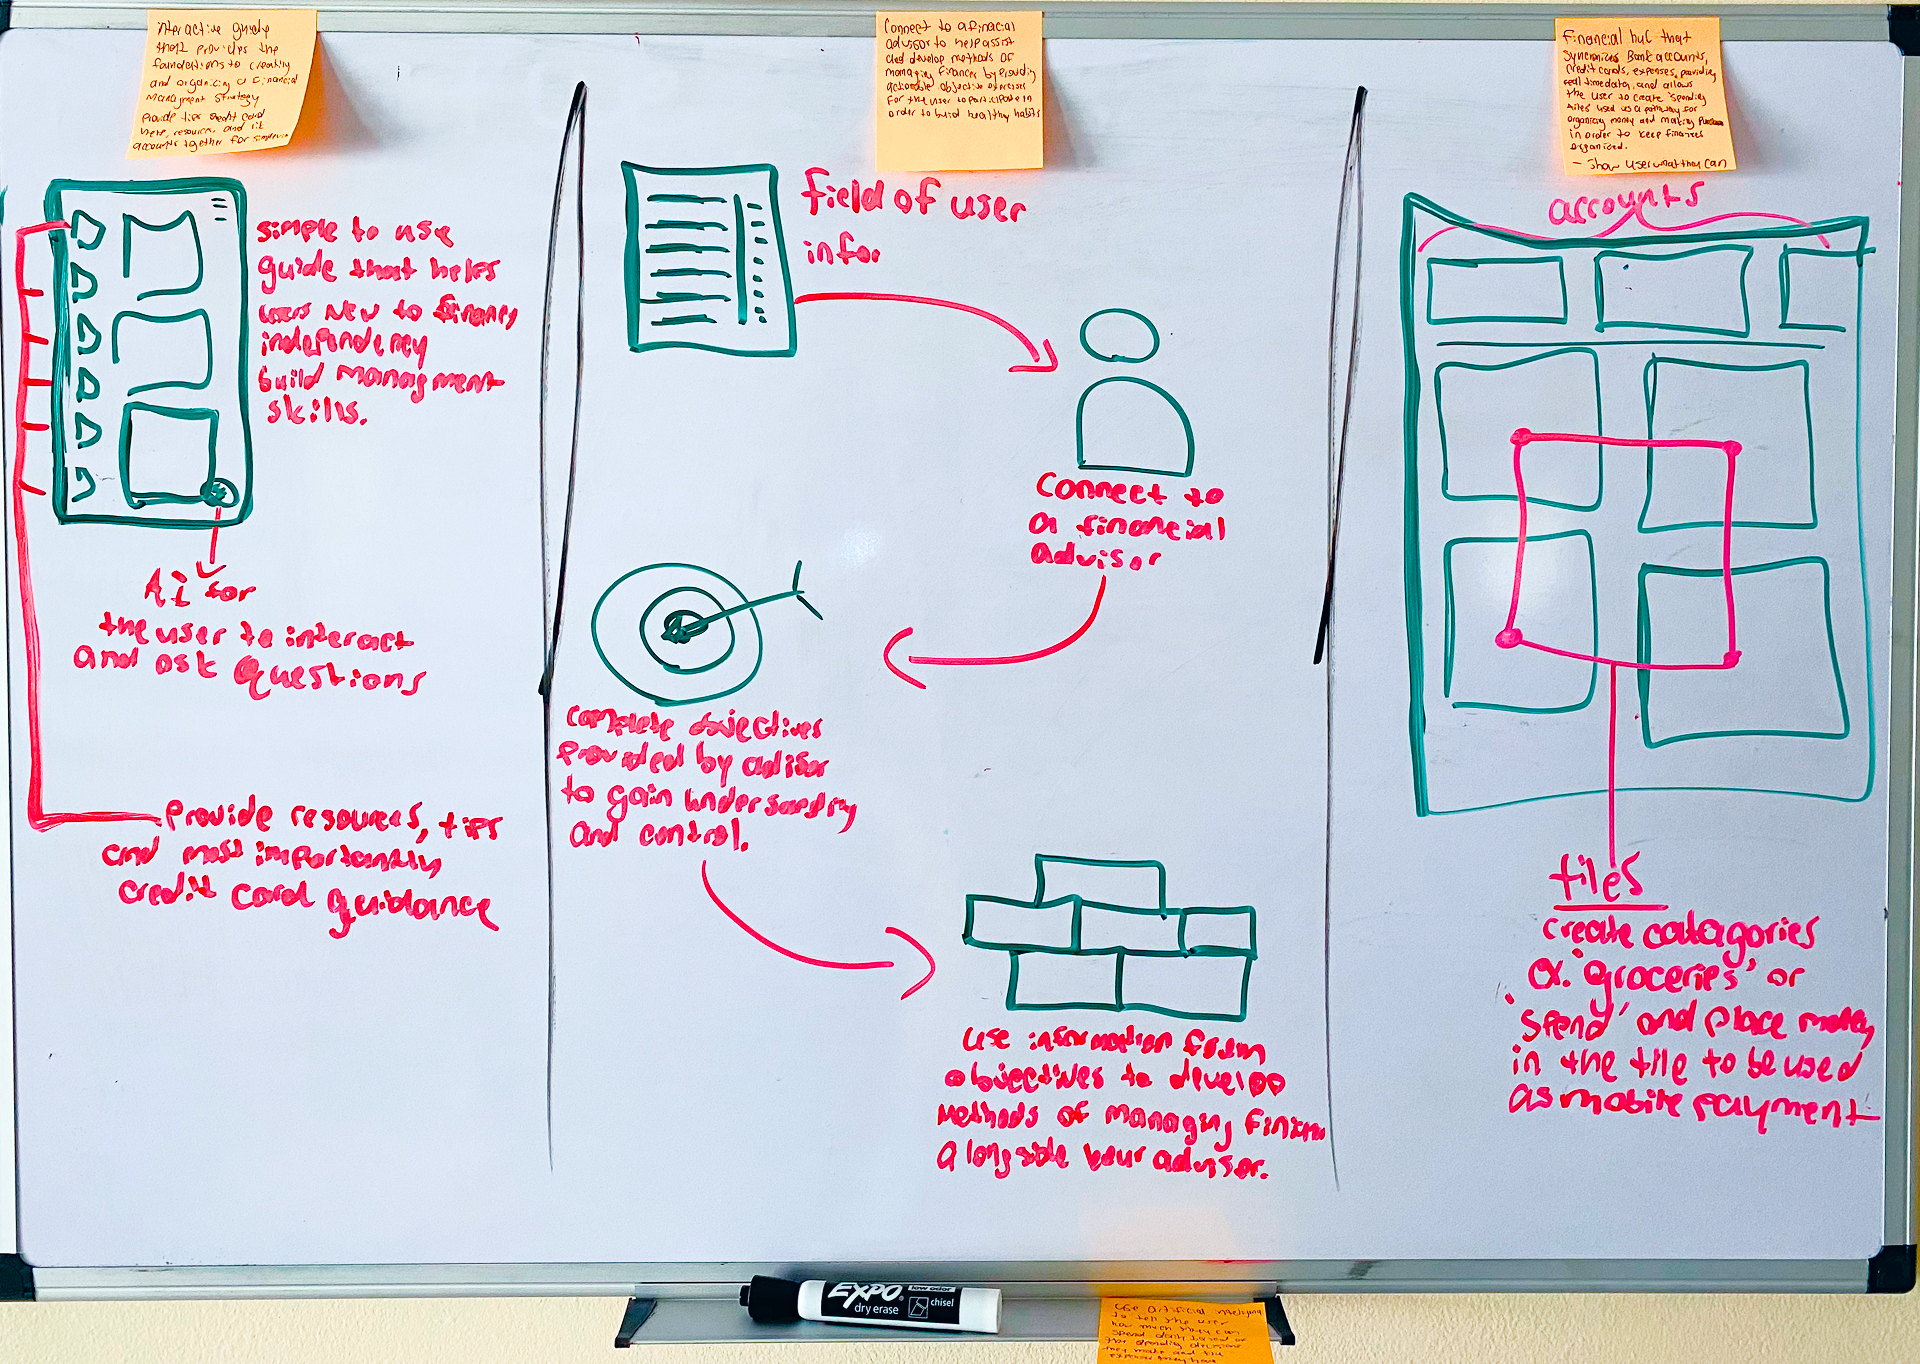 interactive guide
that provides the
foundations to creating
and organizing a financial
managment strategy
Provide tips credit card
here, resources, and
accounts together for
Connect to a finacial
advisor to help assist
and develop methods of
managing finances by providing
actionable objective exercises
for the user to participate in
order to build healthy habits
Financial hub that
Syncronizes Bank accounts,
credit cards, expenses, providing
real time data, and allows
the user to create 'spending
tiles' used as a pathway for
organizing money and making Purchases
in order to keep finances
organized.
- Show user what they can
simple to use
guide that helps
users New to financy
independency
build managment
skills.
Ai for
the user to interact
and ask questions
Provide resources, tips
and most importantly
credit card guidance
field of user
info.
Connect to
a financial
advisor
complete objectives
provided by advisor
to gain
and control.
use information from
objectives to develop
methods of managing
alongside your advisor.
accounts
tiles
create catagories
ex. 'groceries' or
'spend' and place money
in the tile to be used
as mobile payment
EXPO® low odor
dry erase chisel
use artificial
to tell the user
how much they can
spend daily based on
the spending decisions
they make and the
expenses they have